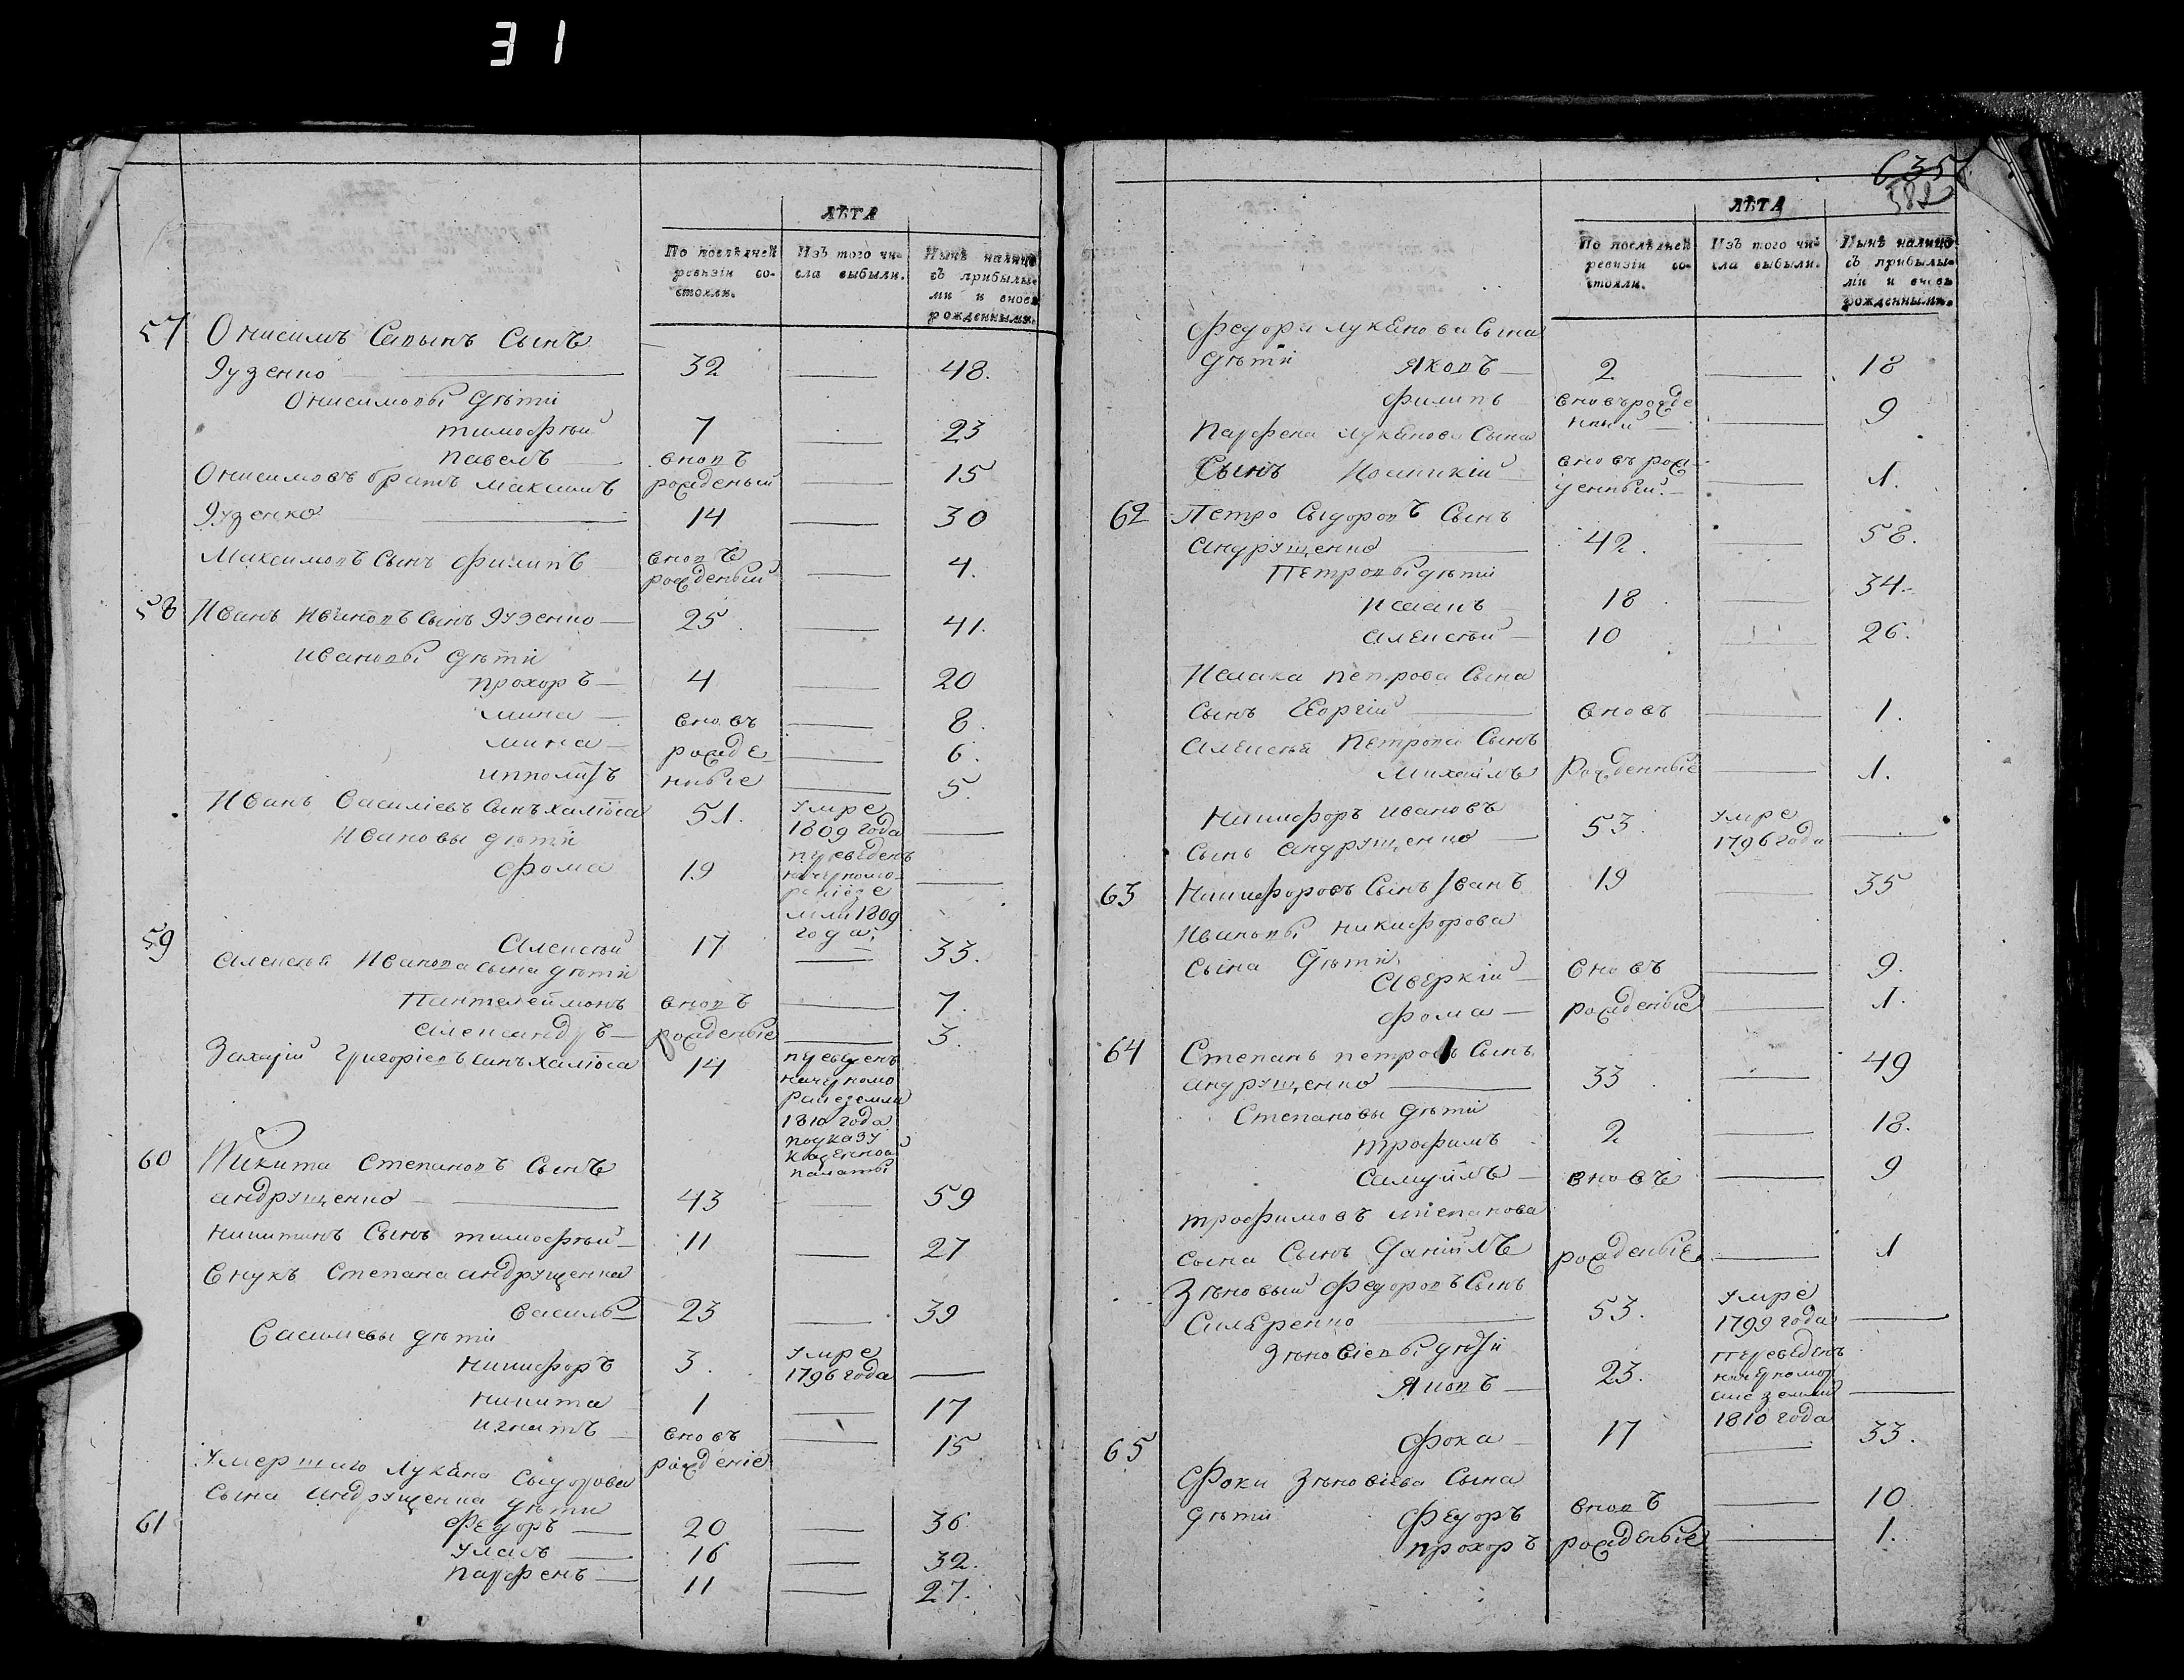 31
ЛѢТА
По послѣдней ревизіи со-стояли.
Изъ того чи-сла выбыли.
Нынѣ налицо съ прибылы-ми и вновь рожденными.
57 Онисимъ Савынъ Сынъ
Яуценко 32 — 48.
Онисимовы дѣти
тимофѣй 7 — 23
павелъ вновъ рожденый — 15
Онисимовъ братъ Максимъ
Яуценко 14 — 30
Максимовъ Сынъ Филипъ вновъ рожденый — 4.
58 Иванъ Ивановъ Сынъ Яуценко 25 — 41.
ивановы дѣти
прохоръ 4 — 20
мина вновъ — 8.
мина рожде — 6.
ипполитъ нные — 5.
Иванъ Василіевъ Сынъ халюта 51. умре 1809 года —
Ивановы дѣти
Фома 19 переведенъ начерномо-
мли 1809 года,
59 Алексѣй 17 — 33.
Алексѣя Иванова сына дѣти
Пантелеймонъ вновъ — 7.
Александръ рожденые — 3.
Захарій Григоріевъ Синъ халюта 14
1810 года
по указу
казенной
палаты
60 Никита Степановъ Сынъ
андрущенко 43 — 59
никитинъ Сынъ тимофѣй 11 — 27
Внукъ Степана андрущенка
василь 23 — 39
Василиевы дѣти
никифоръ 3. умре 1796 года —
никита 1 — 17
игнатъ вновъ рожденіе — 15
Умершаго Лукяна Сыдорова
Сына андрущенка дѣти
61 Федоръ 20 — 36
улась 16 — 32.
парфенъ 11 — 27.
635
582
ЛѢТА
По послѣдней ревизіи со-стояли.
Изъ того чи-сла выбыли.
Нынѣ налицо съ прибылы-ми и вновь рожденными.
Федора лукянова Сына
дѣти Яковъ 2 — 18
филипъ вновърожде нный — 9
Парфена лукянова Сына
Сынъ вновъ рож денный. — 1.
62 Петро Сыдоровъ Сынъ
андрущенко 42. — 58.
Петровы дѣти
Исакъ 18 — 34.
алексѣй 10 — 26.
Исака петрова Сына
сынъ Георгій вновъ — 1.
алексѣя Петрова Сынъ
михаилъ рожденные — 1.
никифоръ ивановъ
сынъ андрущенко 53. умре 1796 года —
63 никифоровъ Сынъ Иванъ 19 — 35
Ивановы никифорова
сына дѣти
аверкій вновъ — 9.
фома рожденые — 1.
64 Степанъ петровъ Сынъ
андрущенко 33 — 49
Степановы дѣти
трофимъ 2 — 18.
Самуилъ вновъ — 9
трофимовъ степанова
сына Сынъ Даніилъ рожденые — 1
Зѣновый Федоровъ Сынъ
53. умре 1799 года —
Зѣновіевы дѣти
Яковъ 23. переведенъ начерномор ские земли 1810 года —
65 Фока 17 — 33.
Фоки Зѣновіева Сына
дѣти Федоръ вновъ — 10.
прохоръ рожденые — 1.